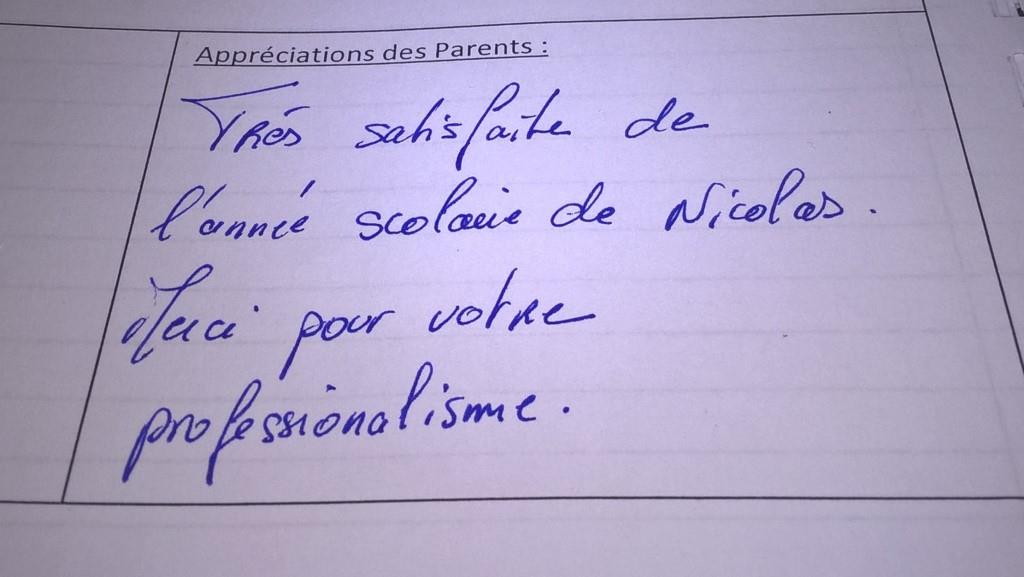 Appréciations des Parents :
Très satisfaite de
l'année scolaire de Nicolas.
Merci pour votre
professionalisme.